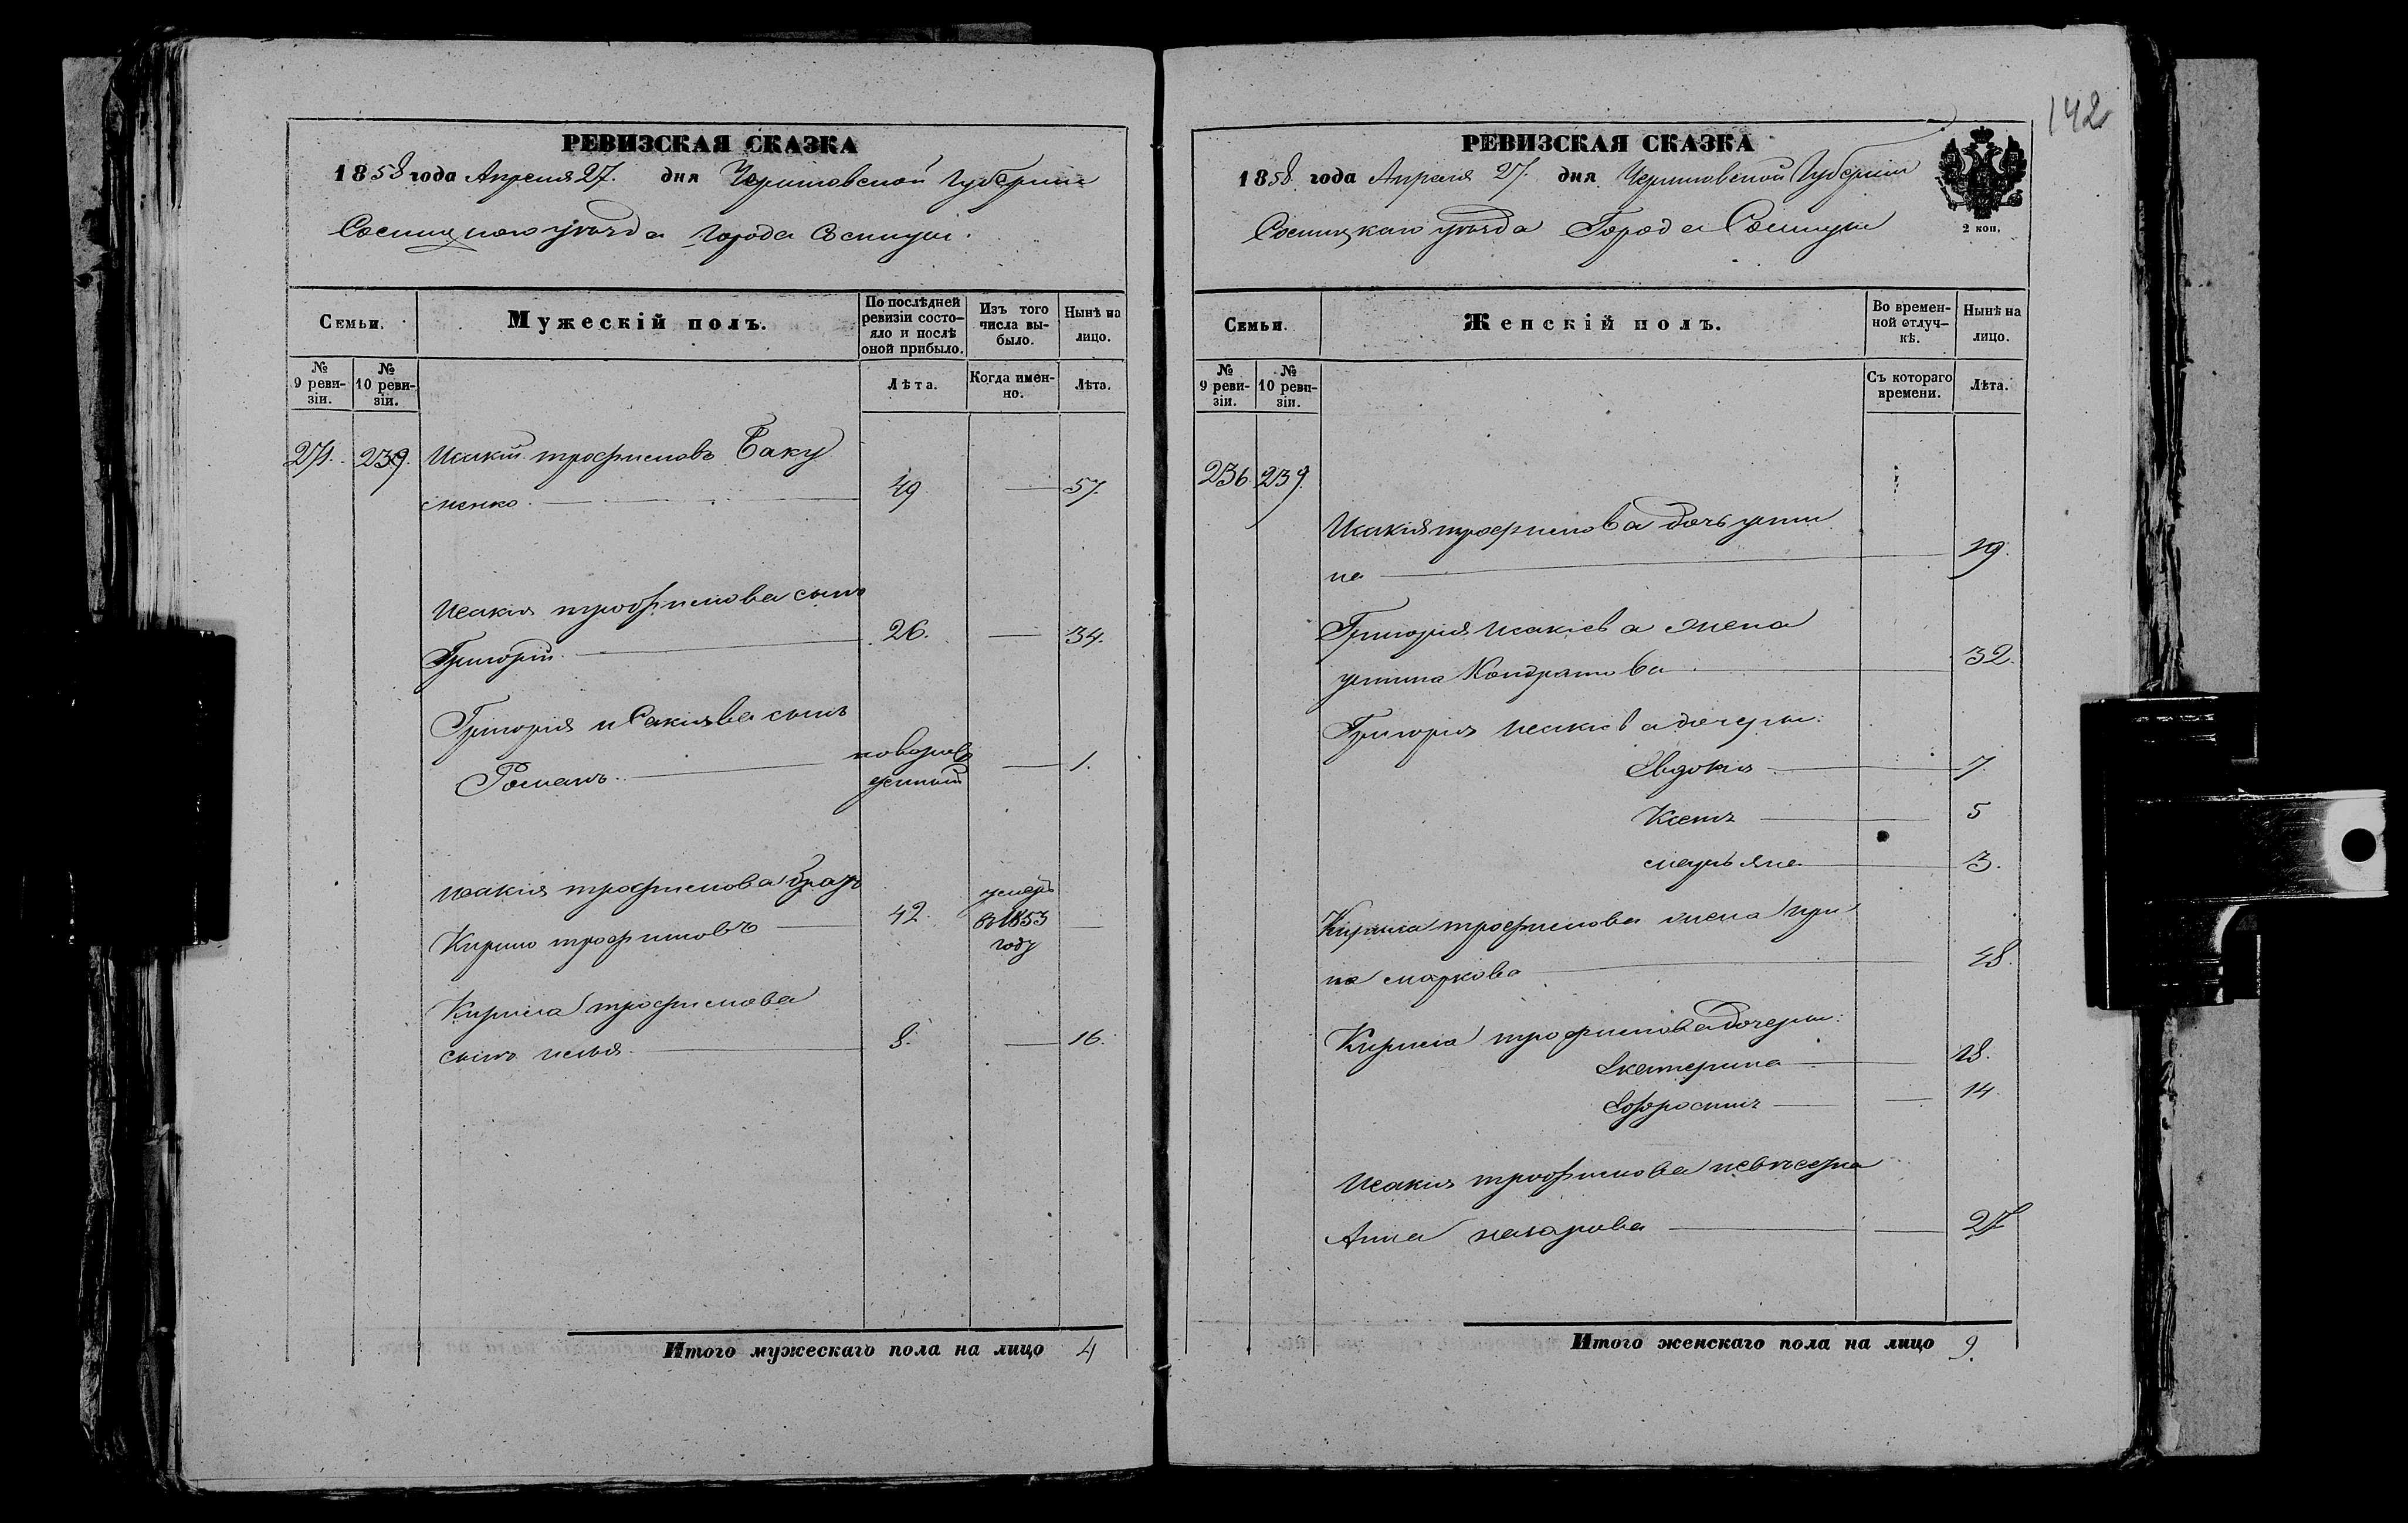 142
РЕВИЗСКАЯ СКАЗКА
1858 года Апреля 27. дня Черниговской Губернии
Сосницкого уѣзда города Сосницы.
Семьи.
Мужескій полъ.
По послѣдней ревизіи состояло и послѣ оной прибыло.
Изъ того числа выбыло.
Нынѣ на лицо.
№ 9 ревизіи.
№ 10 ревизіи.
Лѣта.
Когда именно.
Лѣта.
239. Исакій трофимовъ Баку
менко 49 57.
Исакія трофимова сынъ
Григорій 26. 34.
Григорія исакіева сынъ
Романъ новорожденный 1.
исакія трофимова братъ
Кирило трофимовъ 42. умеръ в 1853 году
Кирила трофимова
сынъ илья 8. 16.
Итого мужескаго пола на лицо 4
РЕВИЗСКАЯ СКАЗКА
1858 года Апреля 27. дня Черниговской Губернии
Сосницкаго уѣзда Города Сосницы
2 коп.
Семьи.
Женскій полъ.
Во временной отлучкѣ.
Нынѣ на лицо.
№ 9 ревизіи.
№ 10 ревизіи.
Съ котораго времени.
Лѣта.
236 239.
Исакія трофимова дочь усти
на 19.
Григорія исакіева жена
устина Кондратова 32.
Григорія исакіева дочери:
Евдокія 7.
5
марьяна 3.
Кирила трофимова жена ири
на маркова 48.
Кирила трофимова дочери:
Екатерина 18.
14.
Исакія трофимова невѣстка
Анна назарова 27
Итого женскаго пола на лицо 9.